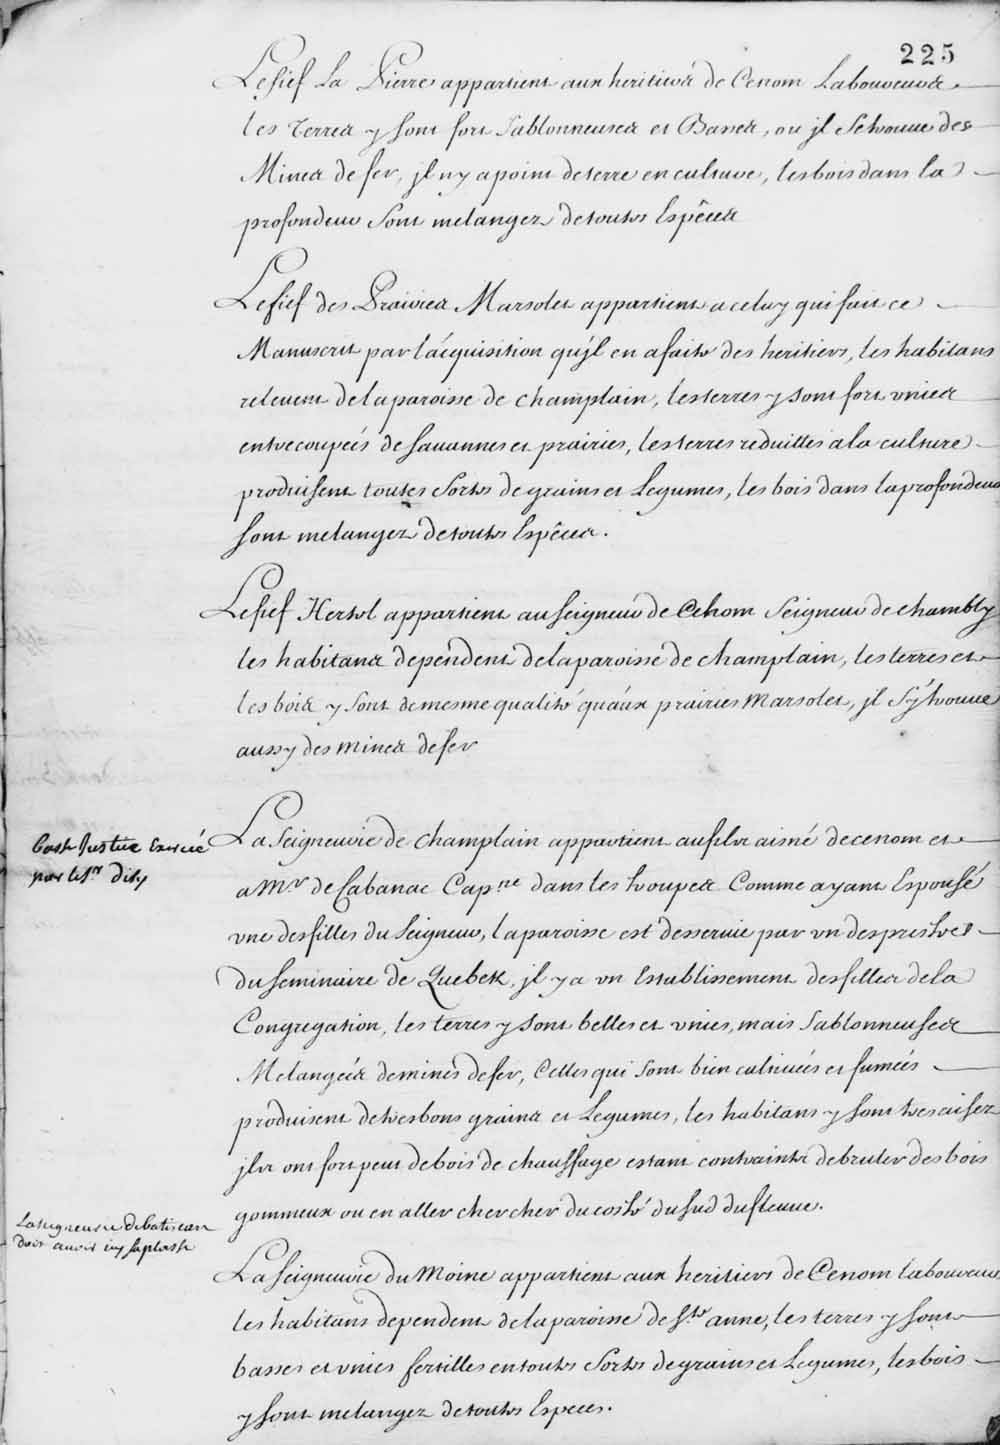 225
Le fief La Pierre appartient aux heritiers de Cenom Laboureurs
les Terres y sont fort Sablonneuses et Basses, ou jl Se trouue des
Mines de fer, jl n'y a point de terre en culture, les bois dans la
profondeur sont melangez de toutes Espêces
Le fief des Prairies Marsolet appartient a celuy qui fait ce
Manuscrit par l'acquisition qu'jl en a faite des heritiers, les habitans
releuent de la paroisse de champlain, les terres y sont fort vnies
entrecoupeés de sauannes et prairies, les terres reduittes a la culture
produisent toutes Sortes de grains et Legumes, les bois dans la profondeur
sont melangez de toutes Espêces.
Le fief Hertel appartient au seigneur de Cenom Seigneur de chambly
les habitans dependent de la paroisse de champlain, les terres et
les bois y sont de mesme qualité qu'aux prairies Marsolet, jl s'y trouue
aussy des mines de fer
Basse Justice Exercée
par le Sr dily
La Seigneurie de champlain appartient au fils aisné de ce nom et
a Mr de Cabanac Capne dans les troupes Comme ayant Espousé
vne des filles du Seigneur, la paroisse est desseruie par vn des prestres
du seminaire de Quebek, jl y a vn Establissement des filles de la
Congregation, les terres y sont belles et vnies, mais Sablonneuses
Melangeés de mines de fer, Celles qui sont bien cultiueés et fumeés
produisent de tres bons grains et Legumes, les habitans y sont tres aisez
jls ont fort peu de bois de chauffage estant contraints de bruler des bois
gommeux ou en aller chercher du costé du sud du fleuue.
La seigneurie de batiscan
doit auoir icy sa place
La seigneurie du Moine appartient aux heritiers de Cenom laboureurs
les habitans dependent de la paroisse de Ste anne, les terres y sont
basses et vnies fertilles en toutes Sortes de grains et Legumes, les bois
y sont melangez de toutes Especes.